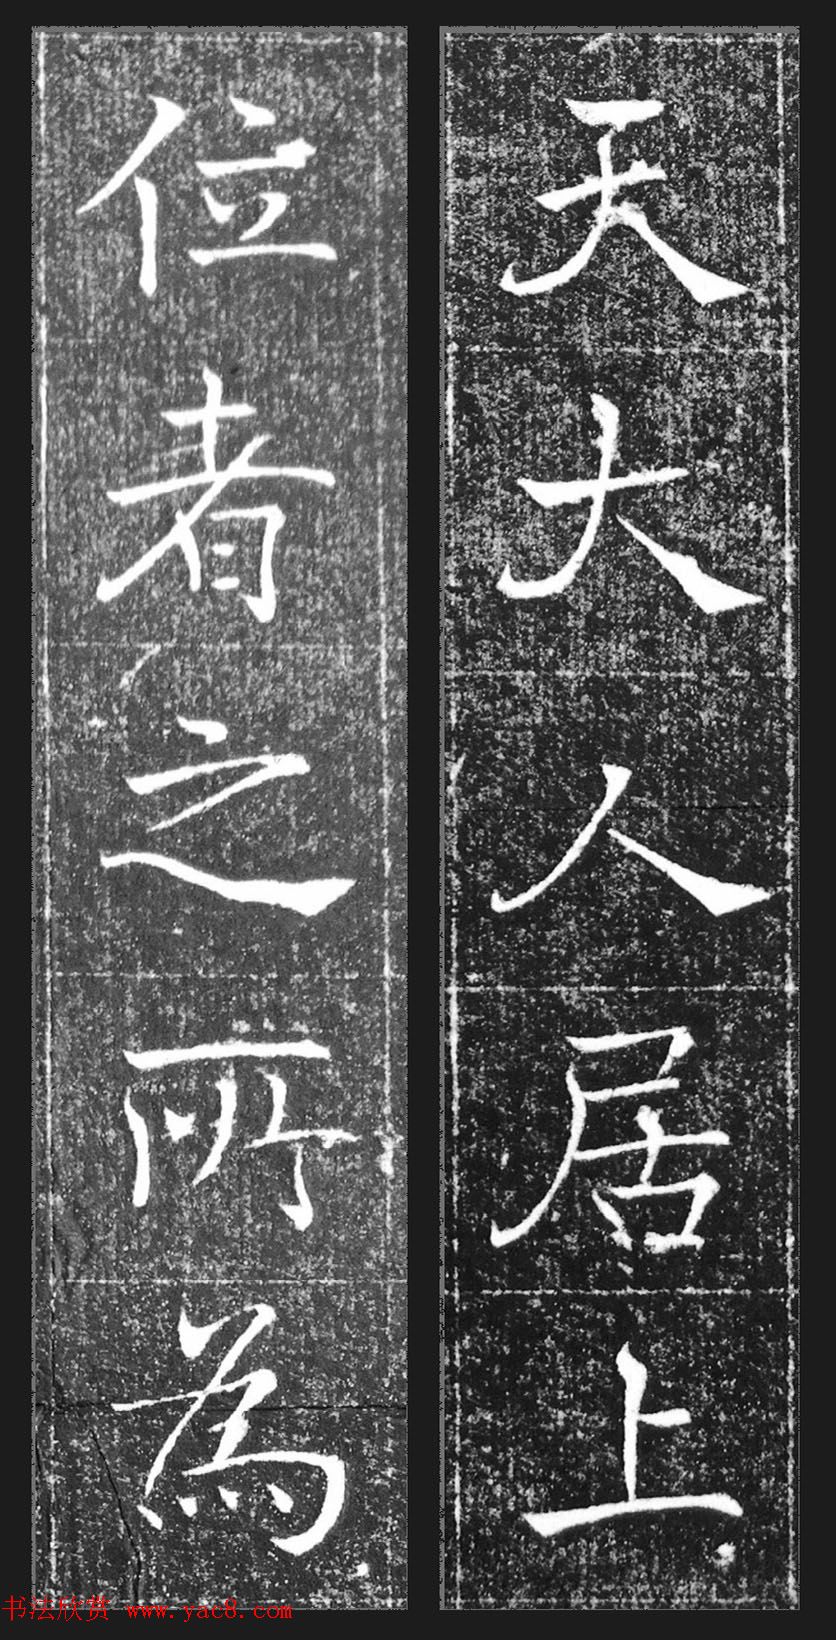 天大人居上
位者之所為
书法欣赏 www.yac8.com